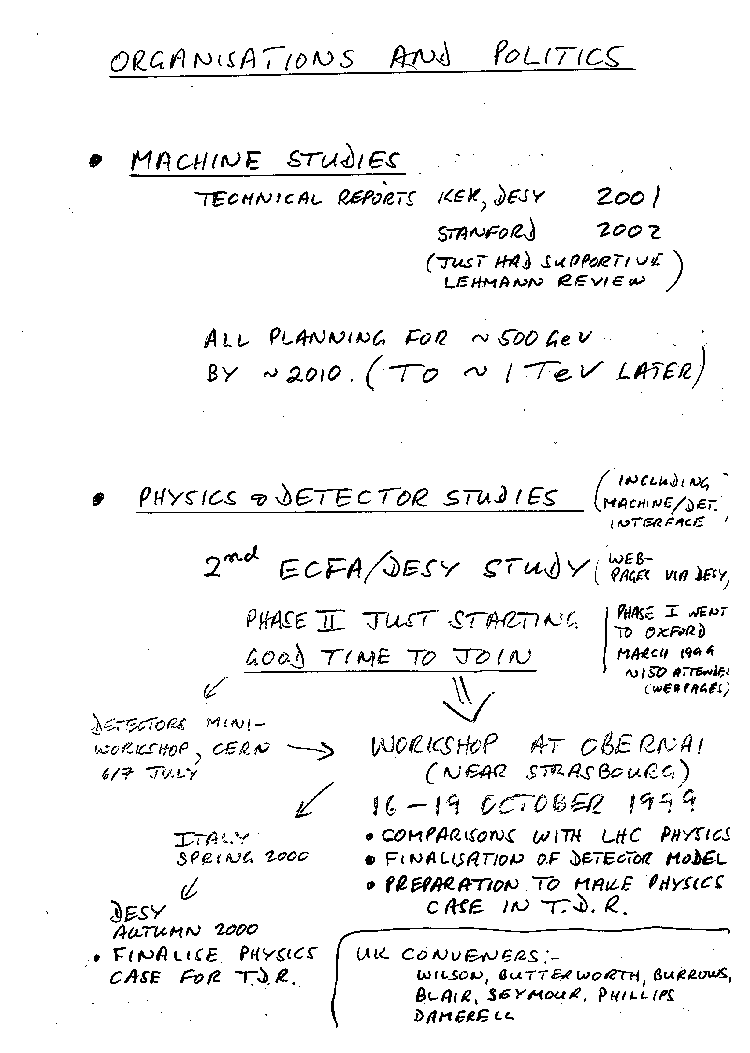 ORGANISATIONS AND POLITICS
• MACHINE STUDIES
TECHNICAL REPORTS KEK, DESY 2001
STANFORD 2002
(JUST HAD SUPPORTIVE
LEHMANN REVIEW)
ALL PLANNING FOR ~500 GeV
BY ~2010. (TO ~1 TeV LATER)
• PHYSICS & DETECTOR STUDIES
(INCLUDING
MACHINE/DET.
INTERFACE
2nd ECFA/DESY STUDY
(WEB-
PAGES VIA DESY,
PHASE II JUST STARTING
GOOD TIME TO JOIN
PHASE I WENT
TO OXFORD
MARCH 1999
~150 ATTENDE
(WEBPAGES)
DETECTORS MINI-
WORKSHOP, CERN
6/7 JULY
WORKSHOP AT OBERNAI
(NEAR STRASBOURG)
16-19 OCTOBER 1999
• COMPARISONS WITH LHC PHYSICS
• FINALISATION OF DETECTOR MODEL
• PREPARATION TO MAKE PHYSICS
CASE IN T.D.R.
ITALY
SPRING 2000
DESY
AUTUMN 2000
• FINALISE PHYSICS
CASE FOR T.D.R.
UK CONVENERS:-
WILSON, BUTTERWORTH, BURROWS,
BLAIR, SEYMOUR, PHILLIPS
DAMERELL